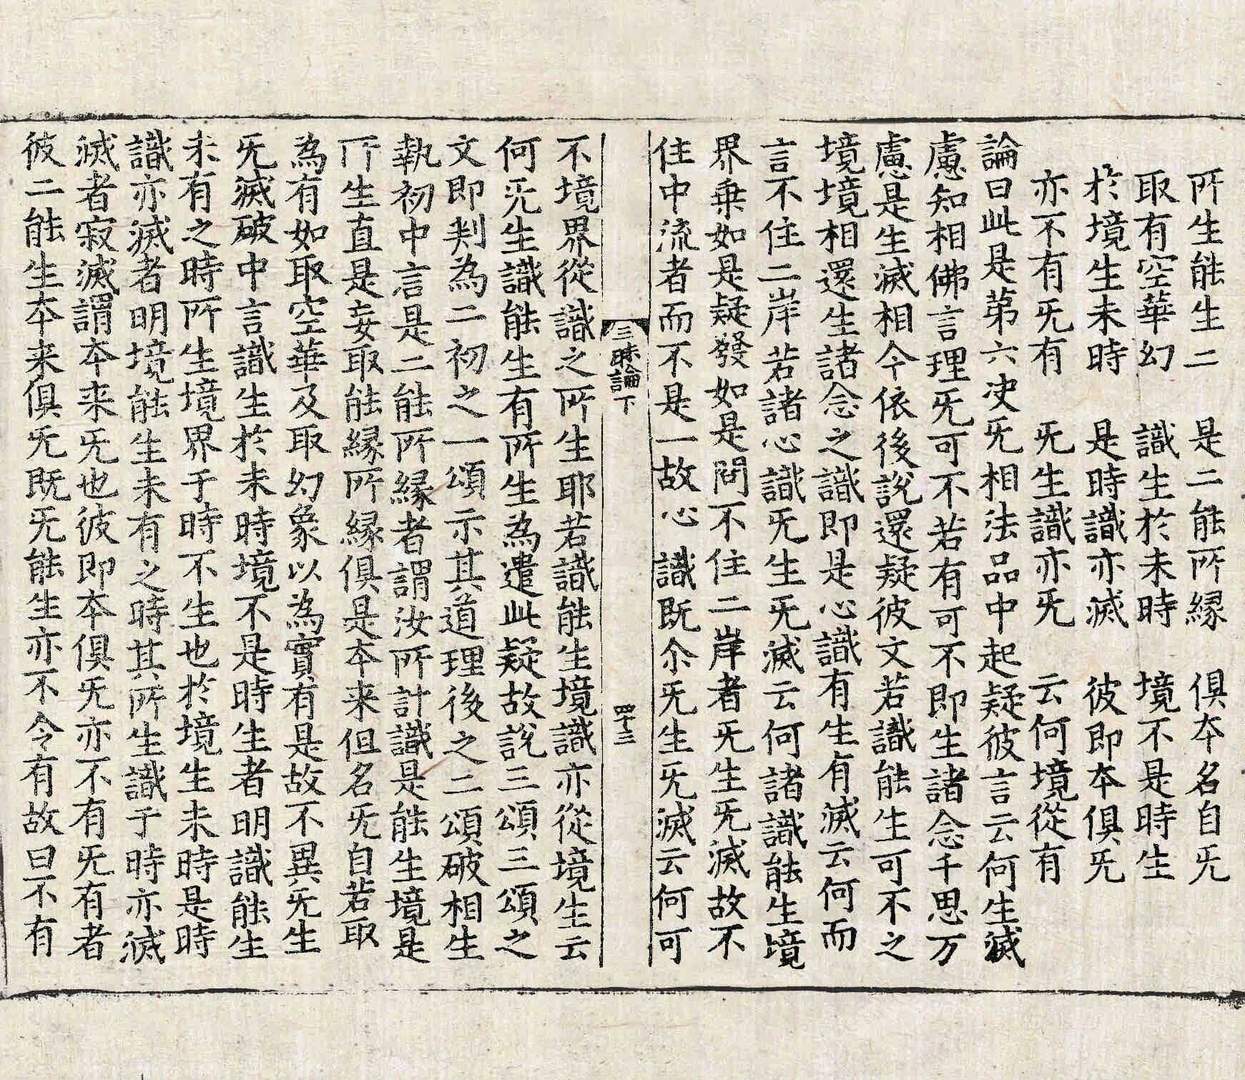 所生能生二　是二能所縁　俱本名自旡
取有空華幻　識生於未時　境不是時生
於境生未時　是時識亦滅　彼即本俱旡
亦不有旡有　旡生識亦旡　云何境從有
論曰此是第六決旡相法品中起疑彼言云何生滅
慮知相佛言理旡可不若有可不即生諸念千思万
慮是生滅相今依後說還疑彼文若識能生可不之
境境相還生諸念之識即是心識有生有滅云何而
言不住二岸若諸心識旡生旡滅云何諸識能生境
界乗如是疑發如是問不住二岸者旡生旡滅故不
住中流者而不是一故心識既尒旡生旡滅云何可
三昧論下　四十三
不境界從識之所生耶若識能生境識亦從境生云
何旡生識能生有所生為遣此疑故說三頌三頌之
文即判為二初之一頌示其道理後之二頌破相生
執初中言是二能所縁者謂汝所計識是能生境是
所生直是妄取能縁所縁俱是本来但名旡自若取
為有如取空華及取幻象以為實有是故不異旡生
旡滅破中言識生於未時境不是時生者明識能生
未有之時所生境界于時不生也於境生未時是時
識亦滅者明境能生未有之時其所生識于時亦滅
滅者寂滅謂本来旡也彼即本俱旡亦不有旡有者
彼二能生本来俱旡既旡能生亦不令有故曰不有